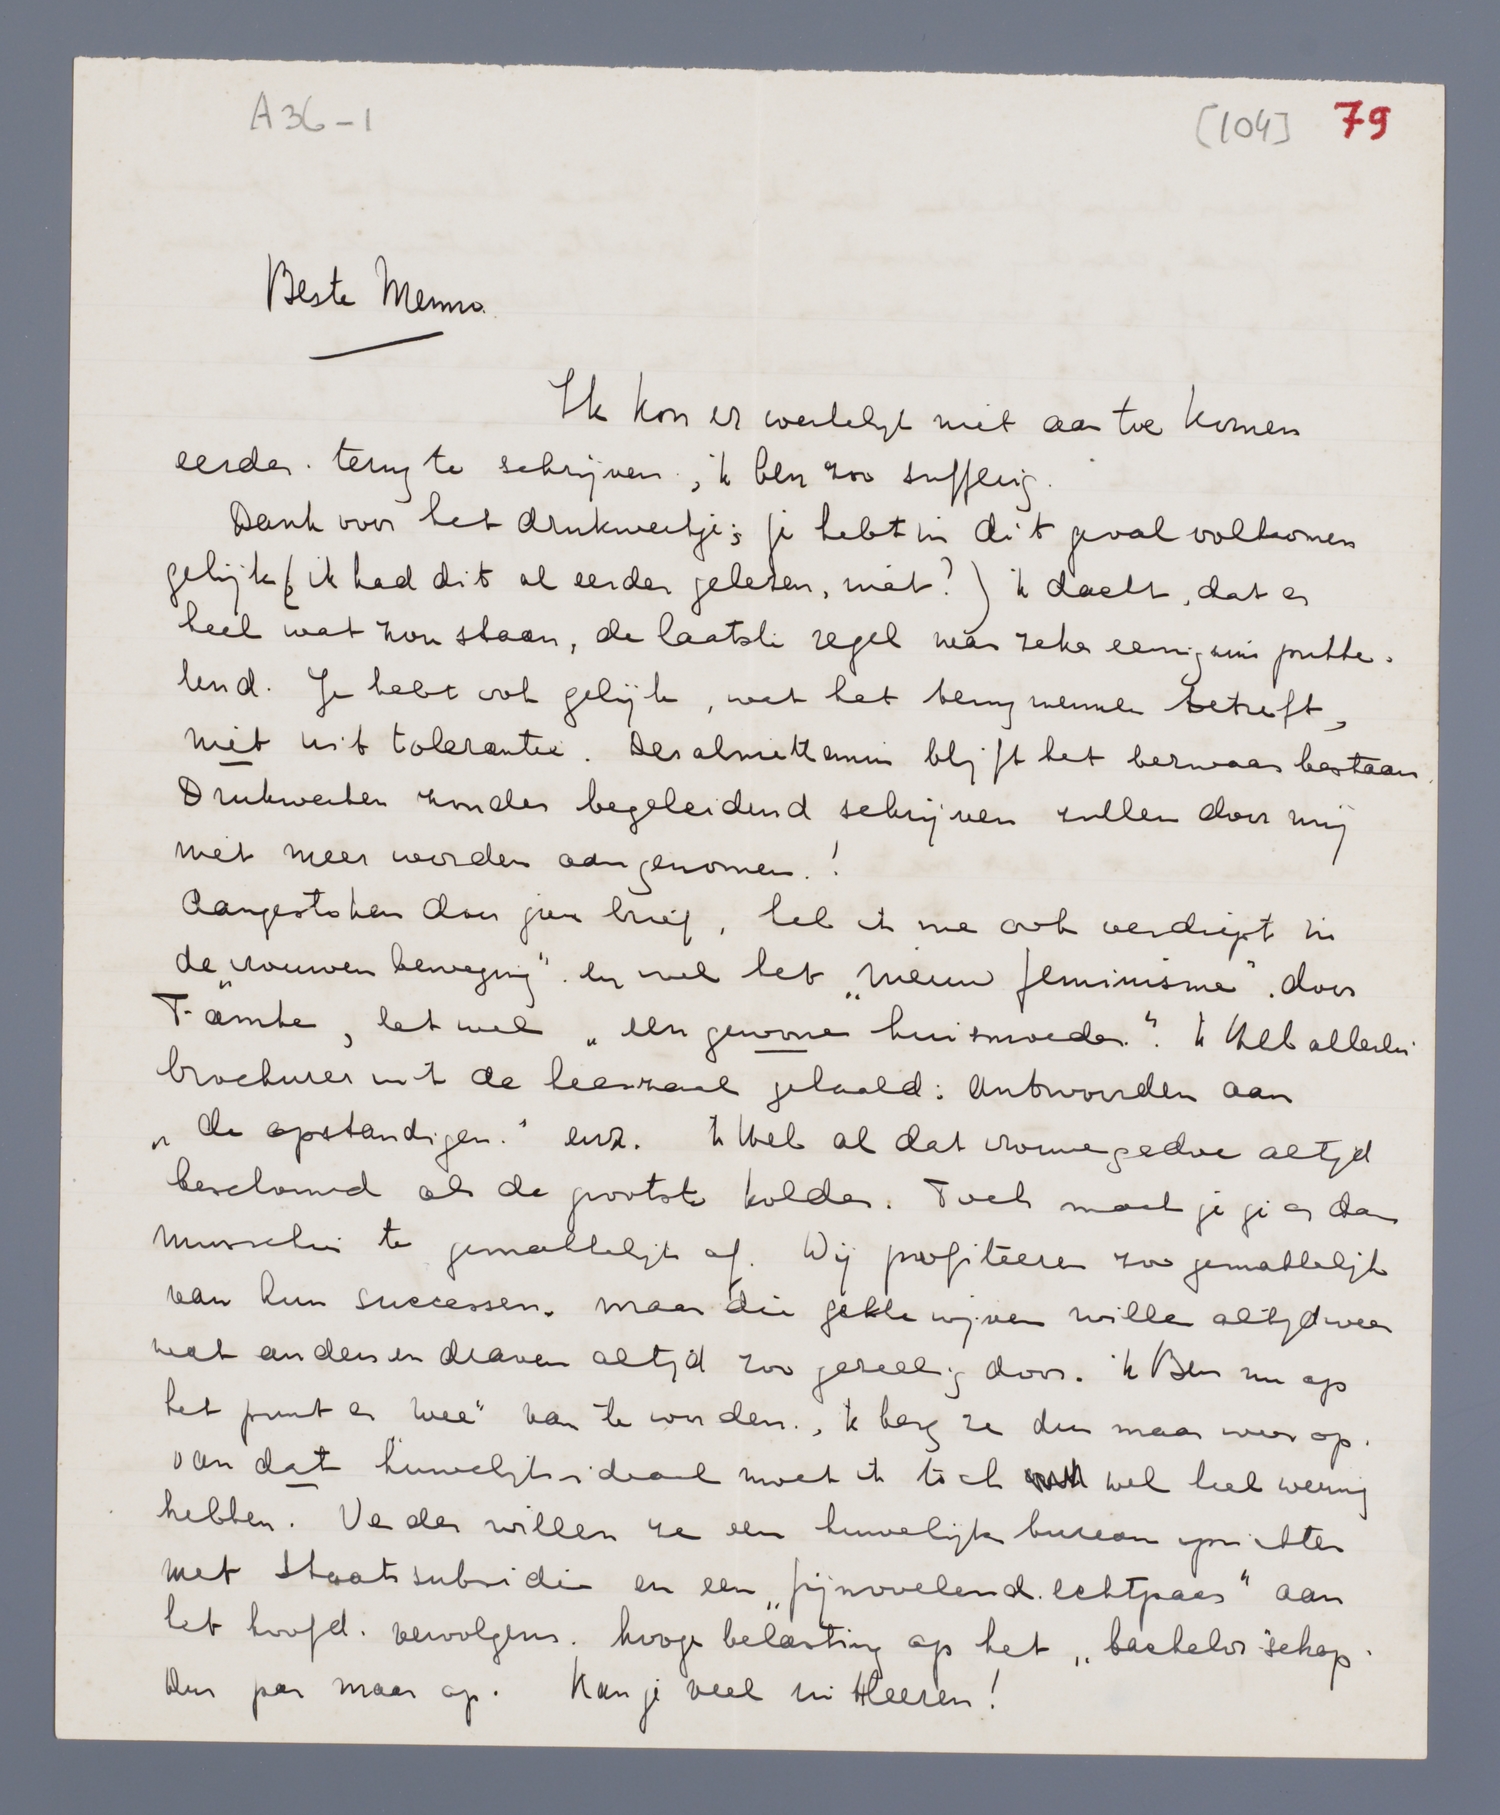 A36-1
[104] 79
Beste Menno.
Ik kon er werkelijk niet aan toe komen
eerder terug te schrijven; ik ben zoo sufferig.
Dank voor het drukwerkje; je hebt in dit geval volkomen
gelijk (ik had dit al eerder gelezen, niet?) ik dacht, dat er
heel wat zou staan, de laatste regel was zeker eenigszins prikke-
lend. Je hebt ook gelijk, wat het terugnemen betreft,
niet uit tolerantie. Desalniettemin blijft het bezwaar bestaan.
Drukwerken zonder begeleidend schrijven zullen door mij
niet meer worden aangenomen.!
Aangestoken door jou brief, heb ik me ook verdiept in
de "vrouwenbeweging" en wel het „nieuw feminisme". door
Femke, let wel „een gewone huismoeder.". ik Heb allerlei
brochures uit de leeszaal gehaald: Antwoorden aan
„de opstandigen." enz. ik Heb al dat vrouwegedoe altijd
beschouwd als de grootste kolder. Toch maak je je er dan
misschien te gemakkelijk af. Wij profiteeren zoo gemakkelijk
van hun successen. maar die gekke wijven willen altijd weer
wat anders en draven altijd zoo gezellig door. ik Ben nu op
het punt er "wee" van te worden., ik berg ze dus maar weer op.
van dat huwelijksideaal moet ik toch wel heel weinig
hebben. Verder willen ze een huwelijksbureau oprichten
met staatssubsidie en een „fijnvoelend echtpaar" aan
het hoofd. vervolgens. hooge belasting op het „bachelorschap.
Dus pas maar op. Kan je veel in Heeren!